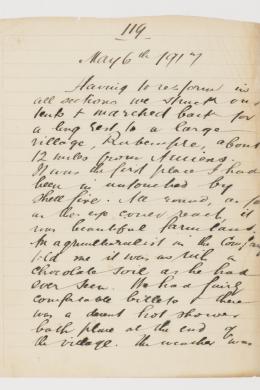 119
May 6th 1917
Having to reform in
all sections we struck our
tents & marched back for
a long rest to a large
village, Rubempre, about
12 miles from Amiens.
It was the first place I had
been in untouched by
shell fire. All round, as far
as the eye could reach, it
was beautiful farm land.
An agriculturalist in the Company
told me it was as rich a
chocolate soil as he had
ever seen. We had fairly
comfortable billets & there
was a decent hot shower
bath place at the end of
the village. The weather was